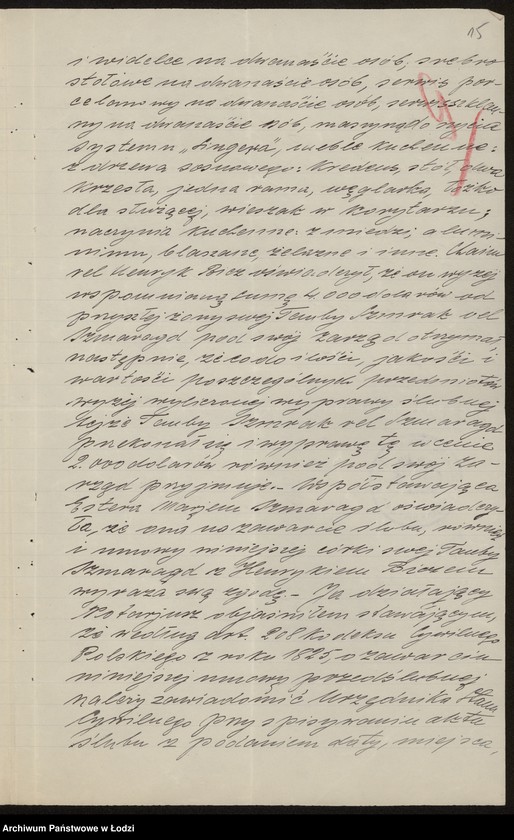 15
i widelce na dwanaście osób, srebro
stołowe na dwanaście osób, serwis por-
celanowy na dwanaście osób, serwis szkla-
ny na dwanaście osób, maszynę do szycia
systemu „Singera”, meble kuchenne:
z drzewa sosnowego: kredens, stół, dwa
krzesła, jedna rama, węglarka, łóżko
dla służącej, wieszak w korytarzu;
naczynia kuchenne: z miedzi, alumi-
nium, blaszane, żelazne i inne. Chaim
vel Henryk oświadczył, że on wyżej
wspomnianą sumę 4.000 dolarów od
przyszłej żony swej Tauby Szmrak vel
Szmaragd pod swój zarząd otrzymał
następnie, że co do ilości, jakości i
wartości poszczególnych przedmiotów
wyżej wyliczonej wyprawy ślubnej
tejże Tauby Szmrak vel Szmaragd
przekonał się i wyprawę tę w cenie
2.000 dolarów również pod swój za-
rząd przyjmuje.- Współstawająca
Estera Marjem Szmaragd oświadczy-
ła, że ona na zawarcie ślubu, również
i umowy niniejszej córki swej Tauby
Szmaragd z Henrykiem
wyraża swą zgodę.- Ja działający
Notarjusz objaśniłem stawającym,
że według art. 208 Kodeksu Cywilnego
Polskiego z roku 1825, o zawarciu
niniejszej umowy przedślubnej
należy zawiadomić Urzędnika Stanu
Cywilnego przy spisywaniu aktu
ślubu z podaniem daty, miejsca,
Archiwum Państwowe w Łodzi